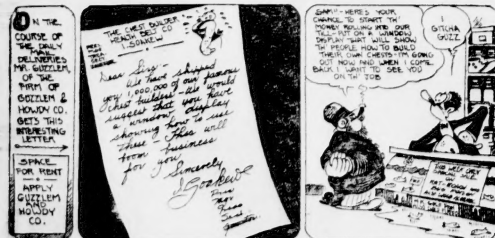 ON THE
COURSE OF
THE DAILY
MAIL
DELIVERIES
MR. GUZZLEM,
OF THE
FIRM OF
GUZZLEM &
HOWDY CO.
GETS THIS
INTERESTING
LETTER
SPACE
FOR RENT
APPLY
GUZZLEM
AND
HOWDY
CO.
THE CHEST BUILDER
VENDA BELT CO
I. SOAKEM
Dear Sirs—
We have shipped
you 1,000,000 of our famous
chest builders—We would
suggest that you have
a window display
showing how to use
these—This will
boom business
for you
Sincerely
I Soakem
Pres
SAM!—HERE'S YOUR
CHANCE TO START TH'
MONEY ROLLING INTO OUR
TILL—PUT ON A WINDOW
DISPLAY THAT WILL SHOW
TH' PEOPLE HOW TO BUILD
THEIR OWN CHESTS—I'M GOING
OUT NOW AND WHEN I COME
BACK I WANT TO SEE YOU
ON TH' JOB
I
GITCHA
GUZZ